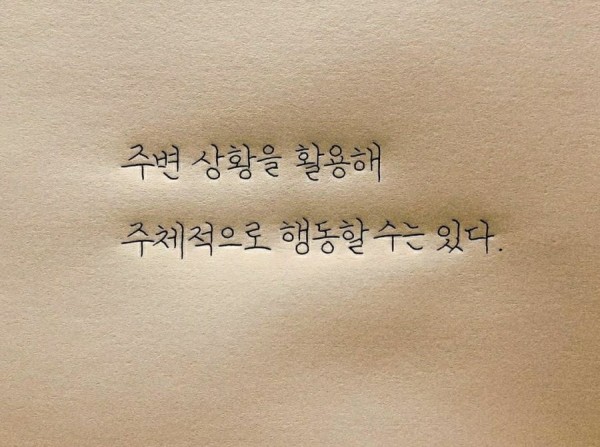 주변 상황을 활용해
주체적으로 행동할 수는 있다.